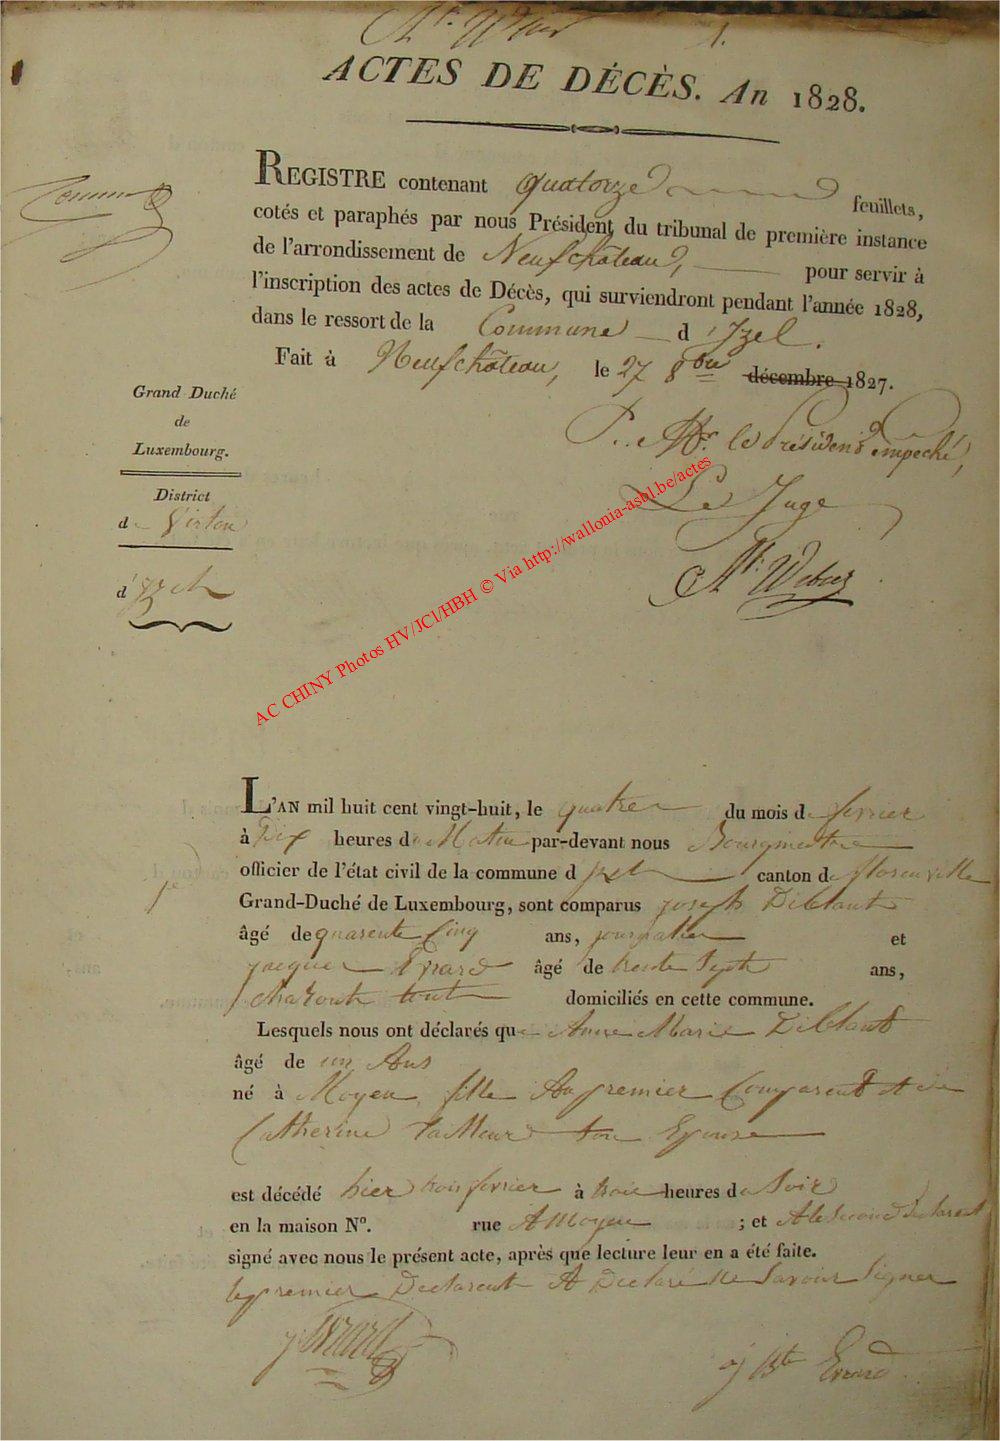 1.
ACTES DE DÉCÈS. An 1828.
REGISTRE contenant quatorze feuillets,
cotés et paraphés par nous Président du tribunal de première instance
de l'arrondissement de Neufchâteau, pour servir à
l'inscription des actes de Décès, qui surviendront pendant l'année 1828,
dans le ressort de la Commune d'Izel.
Fait à Neufchâteau, le 27 8bre décembre 1827.
P. Mr. le Président empeché,
Le Juge
Grand Duché
de
Luxembourg.
District
de Virton
d'izel
AC CHINY Photos HV/JCl/HBH © Via http://wallonia-asbl.be/actes
L'AN mil huit cent vingt-huit, le quatre du mois de fevrier
à Dix heures du Matin par-devant nous Bourgmestre
officier de l'état civil de la commune d izel canton de florenville
1e
Grand-Duché de Luxembourg, sont comparus joseph Diblant
âgé de quarente Cinq ans, journalier et
jacque Evrard âgé de trente Sept ans,
domiciliés en cette commune.
Lesquels nous ont déclarés que Anne Marie Diblant
âgé de un Ans
né à Moyen fille du premier Comparent et de
Catherine tailleur son Epouse
est décédé hier trois fevrier à trois heures du Soir
en la maison N°. rue A Moyen ; et A le second declarent
signé avec nous le présent acte, après que lecture leur en a été faite.
le premier Declarent A Declaré Ne Savoir Signer
j Evrard
j Bte Evrard